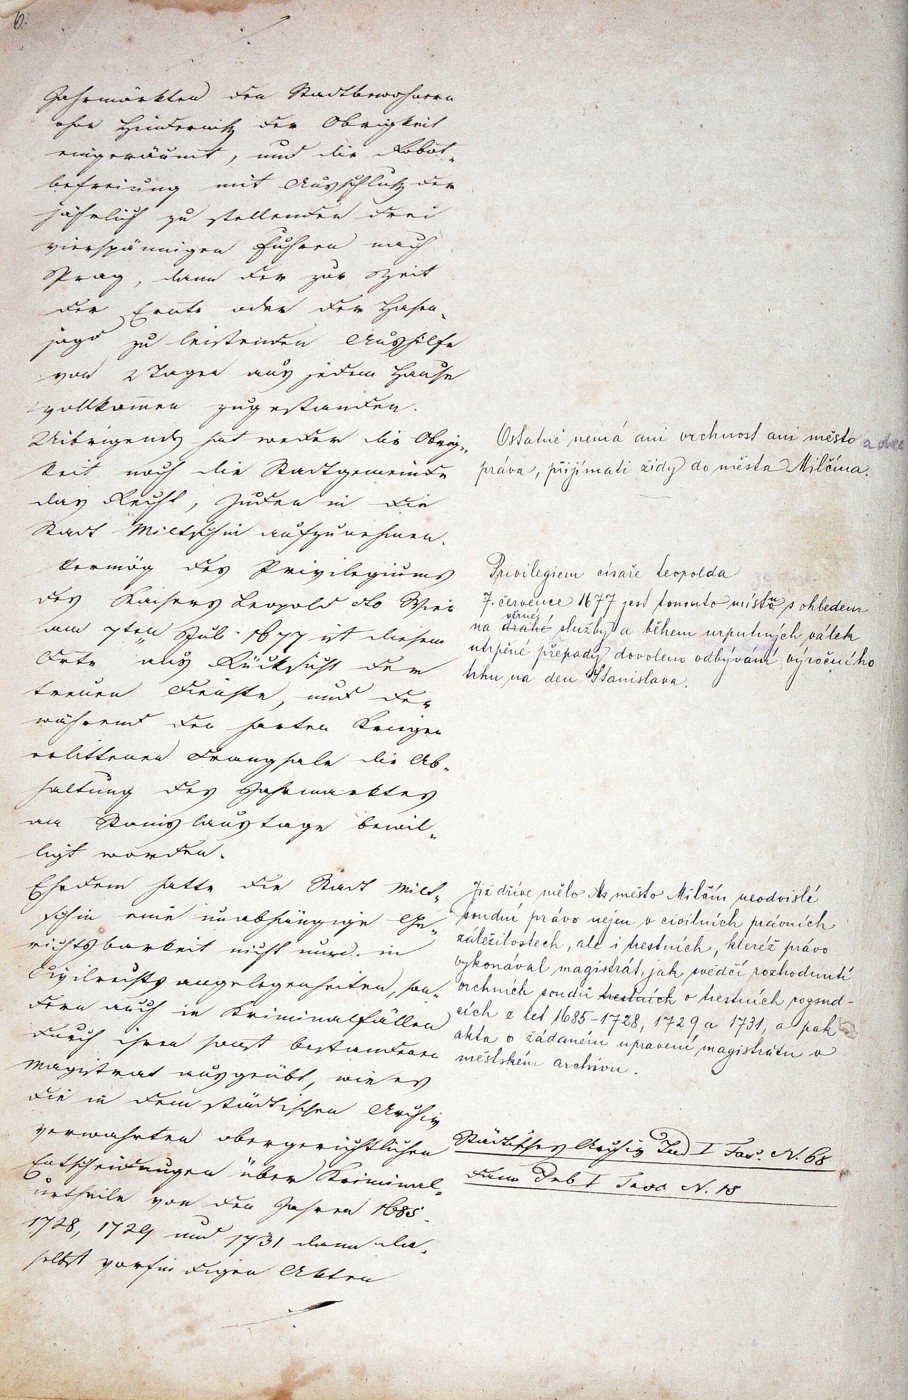 6.
Jahrmärkten den Stadtbewohnern
ohne Hinderniß der Obrigkeit
eingeräumt, und die Robot-
befreiung mit Ausschluß der
jährlich zu stellenden drei
vierspännigen Fuhren nach
Prag, dann der zur Zeit
der Ernte oder der Hasen-
jagd zu leistenden Aushilfe
von 2 Tagen aus jedem Hause
vollkommen zugestanden.
Uibrigends hat weder die Obrig-
keit noch die Stadtgemeinde
das Recht, Juden in die
Stadt Miltschin aufzunehmen.
Vermög des Privilegiums
des Kaisers Leopold dto Wien
am 7ten Juli 1677 ist diesem
Orte aus Rücksicht der
treuen Dienste, und der
während den harten Kriegen
erlittenen Drangsale die Ab-
haltung des Jahrmarktes
am Stanislaustage bewil-
ligt worden.
Ehedem hatte die Stadt Milt-
schin eine unabhängige Ge-
richtsbarkeit nicht nur in
Civilrechtsangelegenheiten, son-
dern auch in Kriminalfällen
durch ihren sonst bestandenen
Magistrat ausgeübt, wie es
die in dem städtischen Archiv
verwahrten obergerichtlichen
Entscheidungen über Kriminal-
urtheile von den Jahren 1685
1728, 1729 und 1731 dann da-
selbst vorfindigen Akten
Ostatně nemá ani vrchnost ani město
práva, přijímati židy do města Milčína.
Privilegiem císaře Leopolda
7. července 1677 jest tomuto městu, s ohledem
na drahé věrné služby a během urputných válek
utrpěné přepady dovoleno odbývání výročního
trhu na den Stanislava.
Již dříve mělo město Milčín neodvislé
soudní právo nejen v civilních právních
záležitostech, ale i trestních, kteréž právo
vykonával magistrát, jak svědčí rozhodnutí
vrchních soudů trestních o trestních rozsud-
cích z let 1685-1728, 1729 a 1731, a pak
akta o žádaném upravení magistrátu v
městském archivu.
Städtisches Archiv Lad I Fas. N. 68
dann Lab I Fasc N. 15